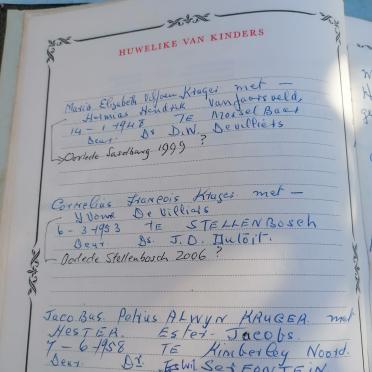 HUWELIKE VAN KINDERS
Maria Elizabeth Viljoen Kruger met —
Hermias Hendrik Van Jaarsveld,
14 - 1 - 1948 TE Mossel Baai
Deur Ds D.W. De Villiers
Oorlede Sasolburg 1999 ?
Cornelius François Kruger met —
Yvonne De Villiers
6 - 3 - 1953 TE STELLENBosch
Deur Ds. J.D. DuToit.
Oorlede Stellenbosch 2006 ?
Jacobus Petrus ALWYN KRUGER met
HESTER Ester Jacobs.
7 - 6 - 1958 TE Kimberley Noord.
Deur Dr. SerFONTEIN